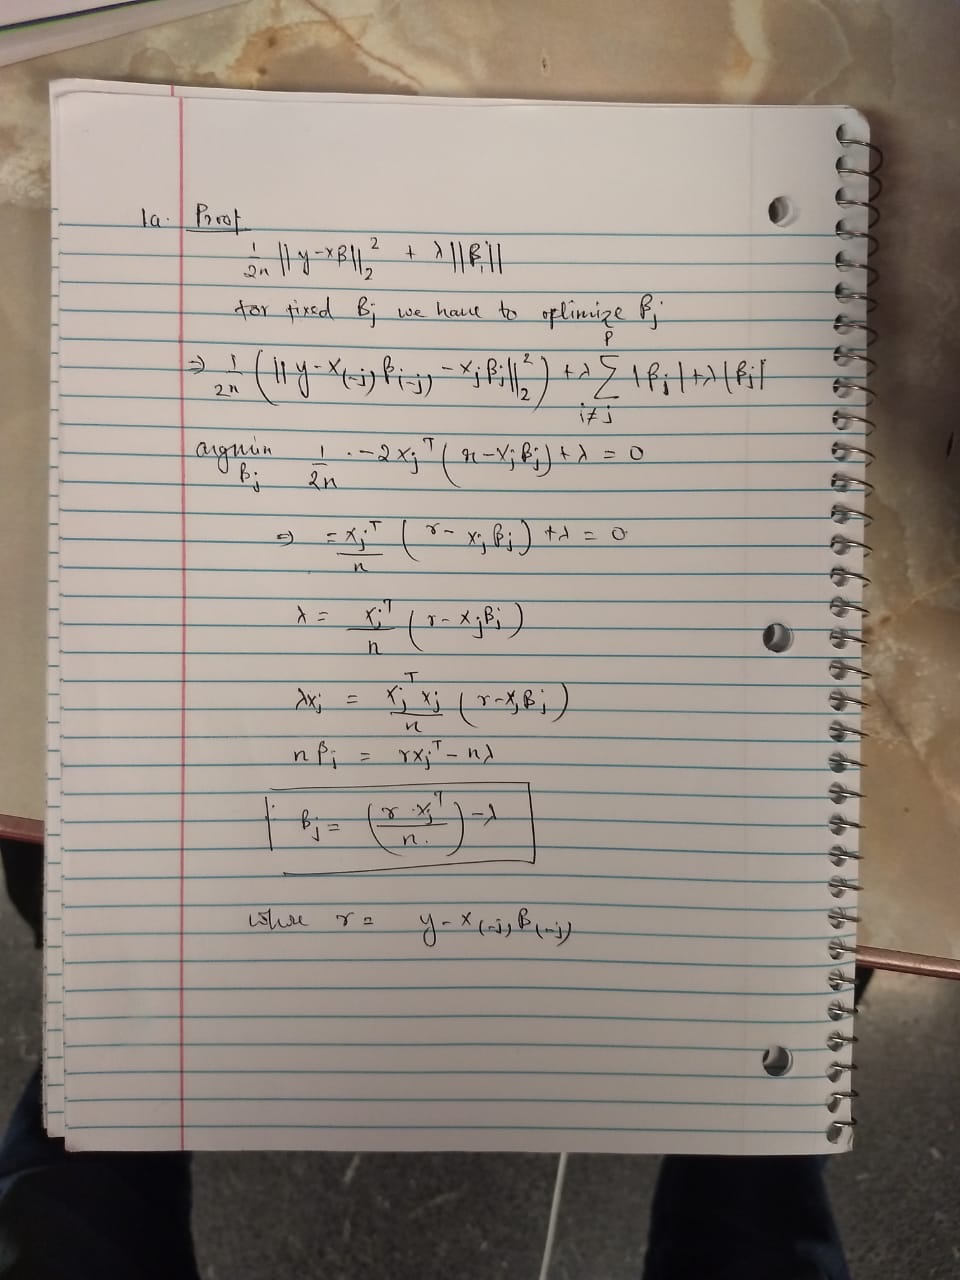 1a. Proof
1/2n ||y-xβ||₂² + λ||β₁||
for fixed βj we have to optimize βj
⇒ 1/2n (||y-X(-j)β(-j) -xjβj||₂²) + λ Σ_{i≠j}^{p} |βj| + λ|βj|
argmin_βj 1/2n · -2xjᵀ (r-xjβj) + λ = 0
⇒ -xjᵀ/n (r- xjβj) + λ = 0
λ = xjᵀ/n (r-xjβj)
λxj = xjᵀxj/n (r-xjβj)
nβj = rxjᵀ - nλ
βj = (r·xjᵀ/n.) -λ
where r = y-x(-j)β(-j)